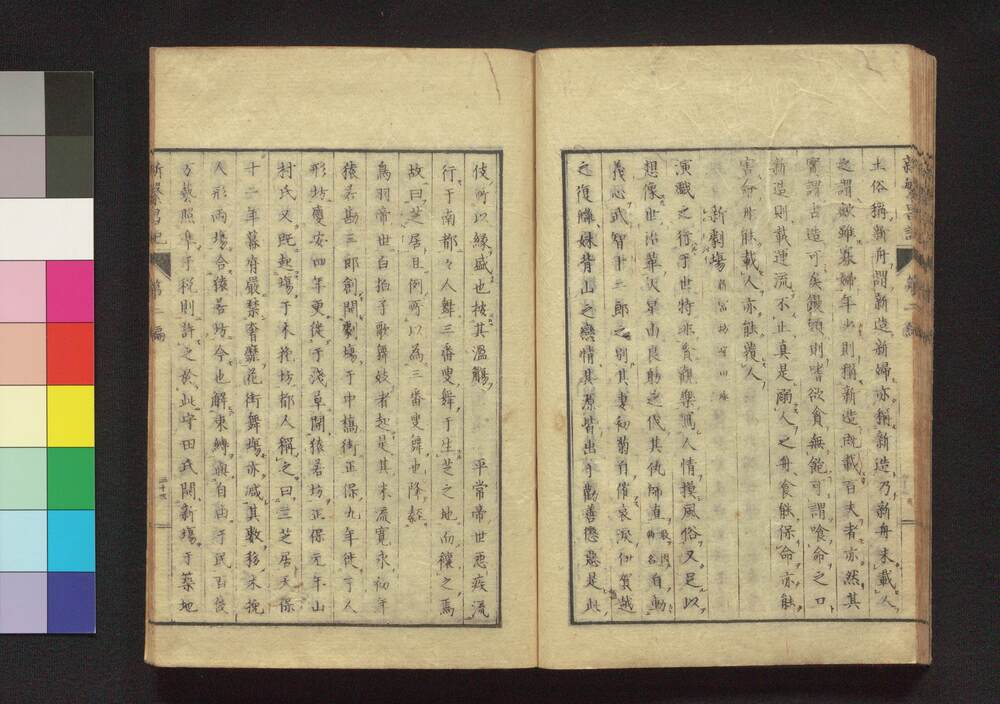 新繁昌記 第二編
土俗稱新舟謂新造新婦亦稱新造乃新舟未載人
之謂歟雖寡婦年少則稱新造既載百夫者亦然其
實謂古造可矣饅頭則嗜欲貪無飽可謂喰命之口
新造則載運流不止真是溺人之舟食能保命亦能
害命舟能載人亦能覆人
新劇場 新富坊守田座
演戲之行于世特非資觀樂寫人情摸風俗又足以
想像世治華 星由良躬之伐其仇師直 自動
義心武智十二郎之別其妻初菊自催哀淚 越
之復 妹背山之戀情其原皆出于勸善懲惡是此
伎所以緣盛也按其濫觴 平常帝世惡疾流
行于南都々人舞三番叟舞于生芝之地而穰之焉
故曰芝居且例所以為三番叟舞也降
鳥羽帝世白拍子歌舞妓者起是其末流寬永初年
猿若勘三郎創開劇場于中橋街正保九年徙于人
形坊慶安四年更徙于淺草開猿若坊正保元年山
村氏又既起場于木挽坊都人稱之曰三芝居天保
十二年幕府嚴禁奢靡花街舞場亦減其數移木挽
人形兩場合猿若坊今也解束縛與自由于民百伎
方藝照準于税則許之於此守田氏開新場于築地
新繁昌記 第二編
二十三